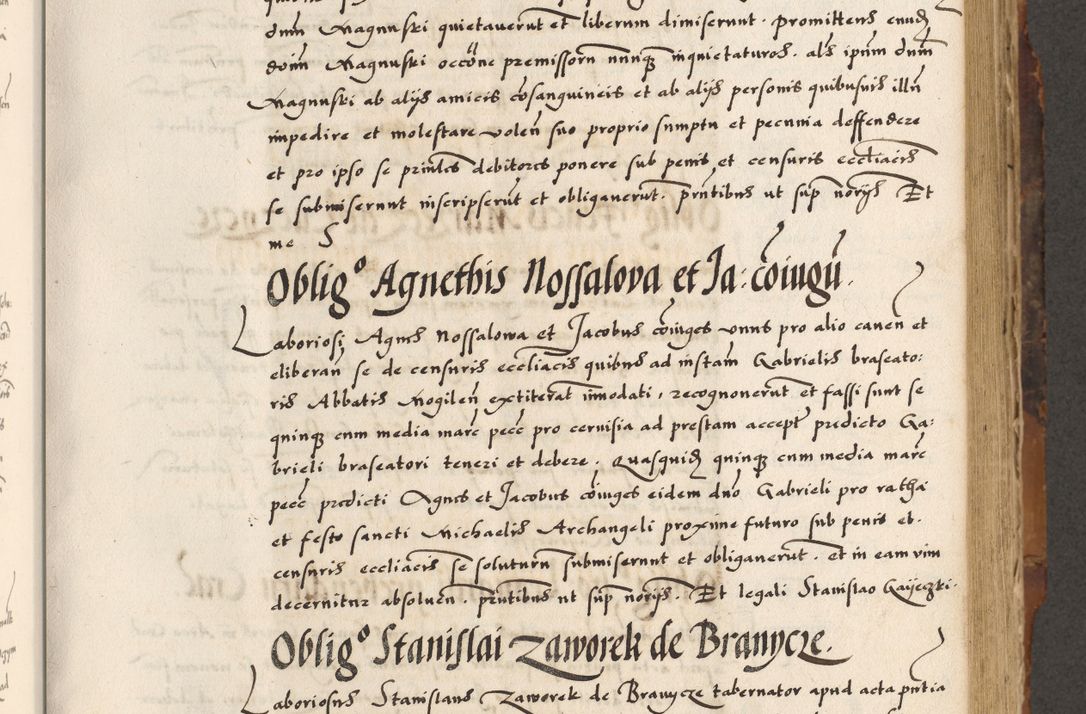 dnm Magnuski quietaverut et liberum dimiserunt. promittens eundē
dom̄ Magnuski occōne premissorū nunq̄ inquietaturos. als ipm̄ dnm̄
Magnuski ab alijs amicis cōsanguineis et ab alijs personis quibusuis illū
impedire et molestare volen̄ suo proprio sumptu et pecunia deffendere
et pro ipso se prin̄les debitores ponere sub penis et censuris eccliacis
se submiserunt inscripserūt et obligaverūt. pn̄tibus ut sup̄ norijs Et
me S
Oblig° Agnethis Nossalova et Ja: cōiugū.
Laboriosi Agnes Nossalowa et Jacobus cōiuges unus pro alio caven̄ et
eliberan̄ se de censuris eccliacis quibus ad instam̄ Gabrielis braseato:
ris Abbatis Mogilen̄ extiterāt in̄nodati, recognoverūt et fassi sunt se
quinq̄ cum media marc̄ pecc̄ pro cervisia ad prestam accept̄ predicto Ga:
brieli braseatori teneri et debere. Quasquid̄ quinq̄ cum media marc̄
pecc̄ predicti Agnes et Jacobus cōiuges eidem dn̄o Gabrieli pro rathā
et festo sancti Michaelis Archangeli proxime futuro sub penis et.
censuris eccliacis se soluturū submiserunt et obligaverūt. et in eam vim
decernitur absoluen̄. pn̄tibus ut sup̄ norijs. Et legali Stanislao Gaijeczki.
Oblig° Stanislai Zaworek de Branycze.
Laboriosus Stanislaus Zaworek de Branycze tabernator apud acta pn̄tia